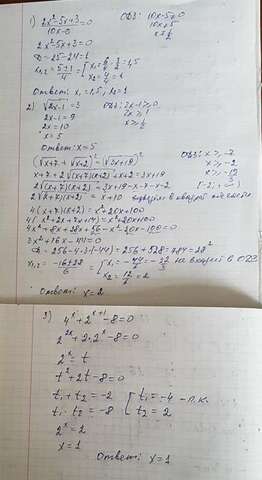 1) 2x²-5x+3 / 10x-5 = 0 ОДЗ: 10x-5≠0
10x≠5
2x²-5x+3=0 x≠1/2
D=25-24=1
x₁,₂ = 5±1 / 4 = [ x₁=6/4=3/2=1,5
x₂=4/4=1
Ответ: x₁=1,5, x₂=1
2) √2x-1=3 ОДЗ: 2x-1≥0
2x-1=9 2x≥1
2x=10 x≥1/2
x=5
Ответ: x=5
(√x+7+√x+2)²=(√3x+19)² ОДЗ: x≥-7
x≥-2
x+7+2√(x+7)(x+2)+x+2=3x+19 x≥-19/3
2√(x+7)(x+2)=3x+19-x-x-7-2 [-2;+∞)
2√(x+7)(x+2)=x+10
4(x+7)(x+2)=x²+20x+100
4(x²+2x+7x+14)=x²+20x+100
4x²+8x+28x+56-x²-20x-100=0
3x²+16x-44=0
D=256-4·3·(-44)=256+528=784=28²
x₁,₂ = -16±28 / 6 = [ x₁=-44/6=-22/3 не входит в ОДЗ
x₂=12/6=2
Ответ: x=2
3) 4ˣ+2ˣ⁺¹-8=0
2²ˣ+2·2ˣ-8=0
2ˣ=t
t²+2t-8=0
t₁+t₂=-2 [ t₁=-4 - п.к.
t₁·t₂=-8 t₂=2
2ˣ=2
x=1
Ответ: x=1